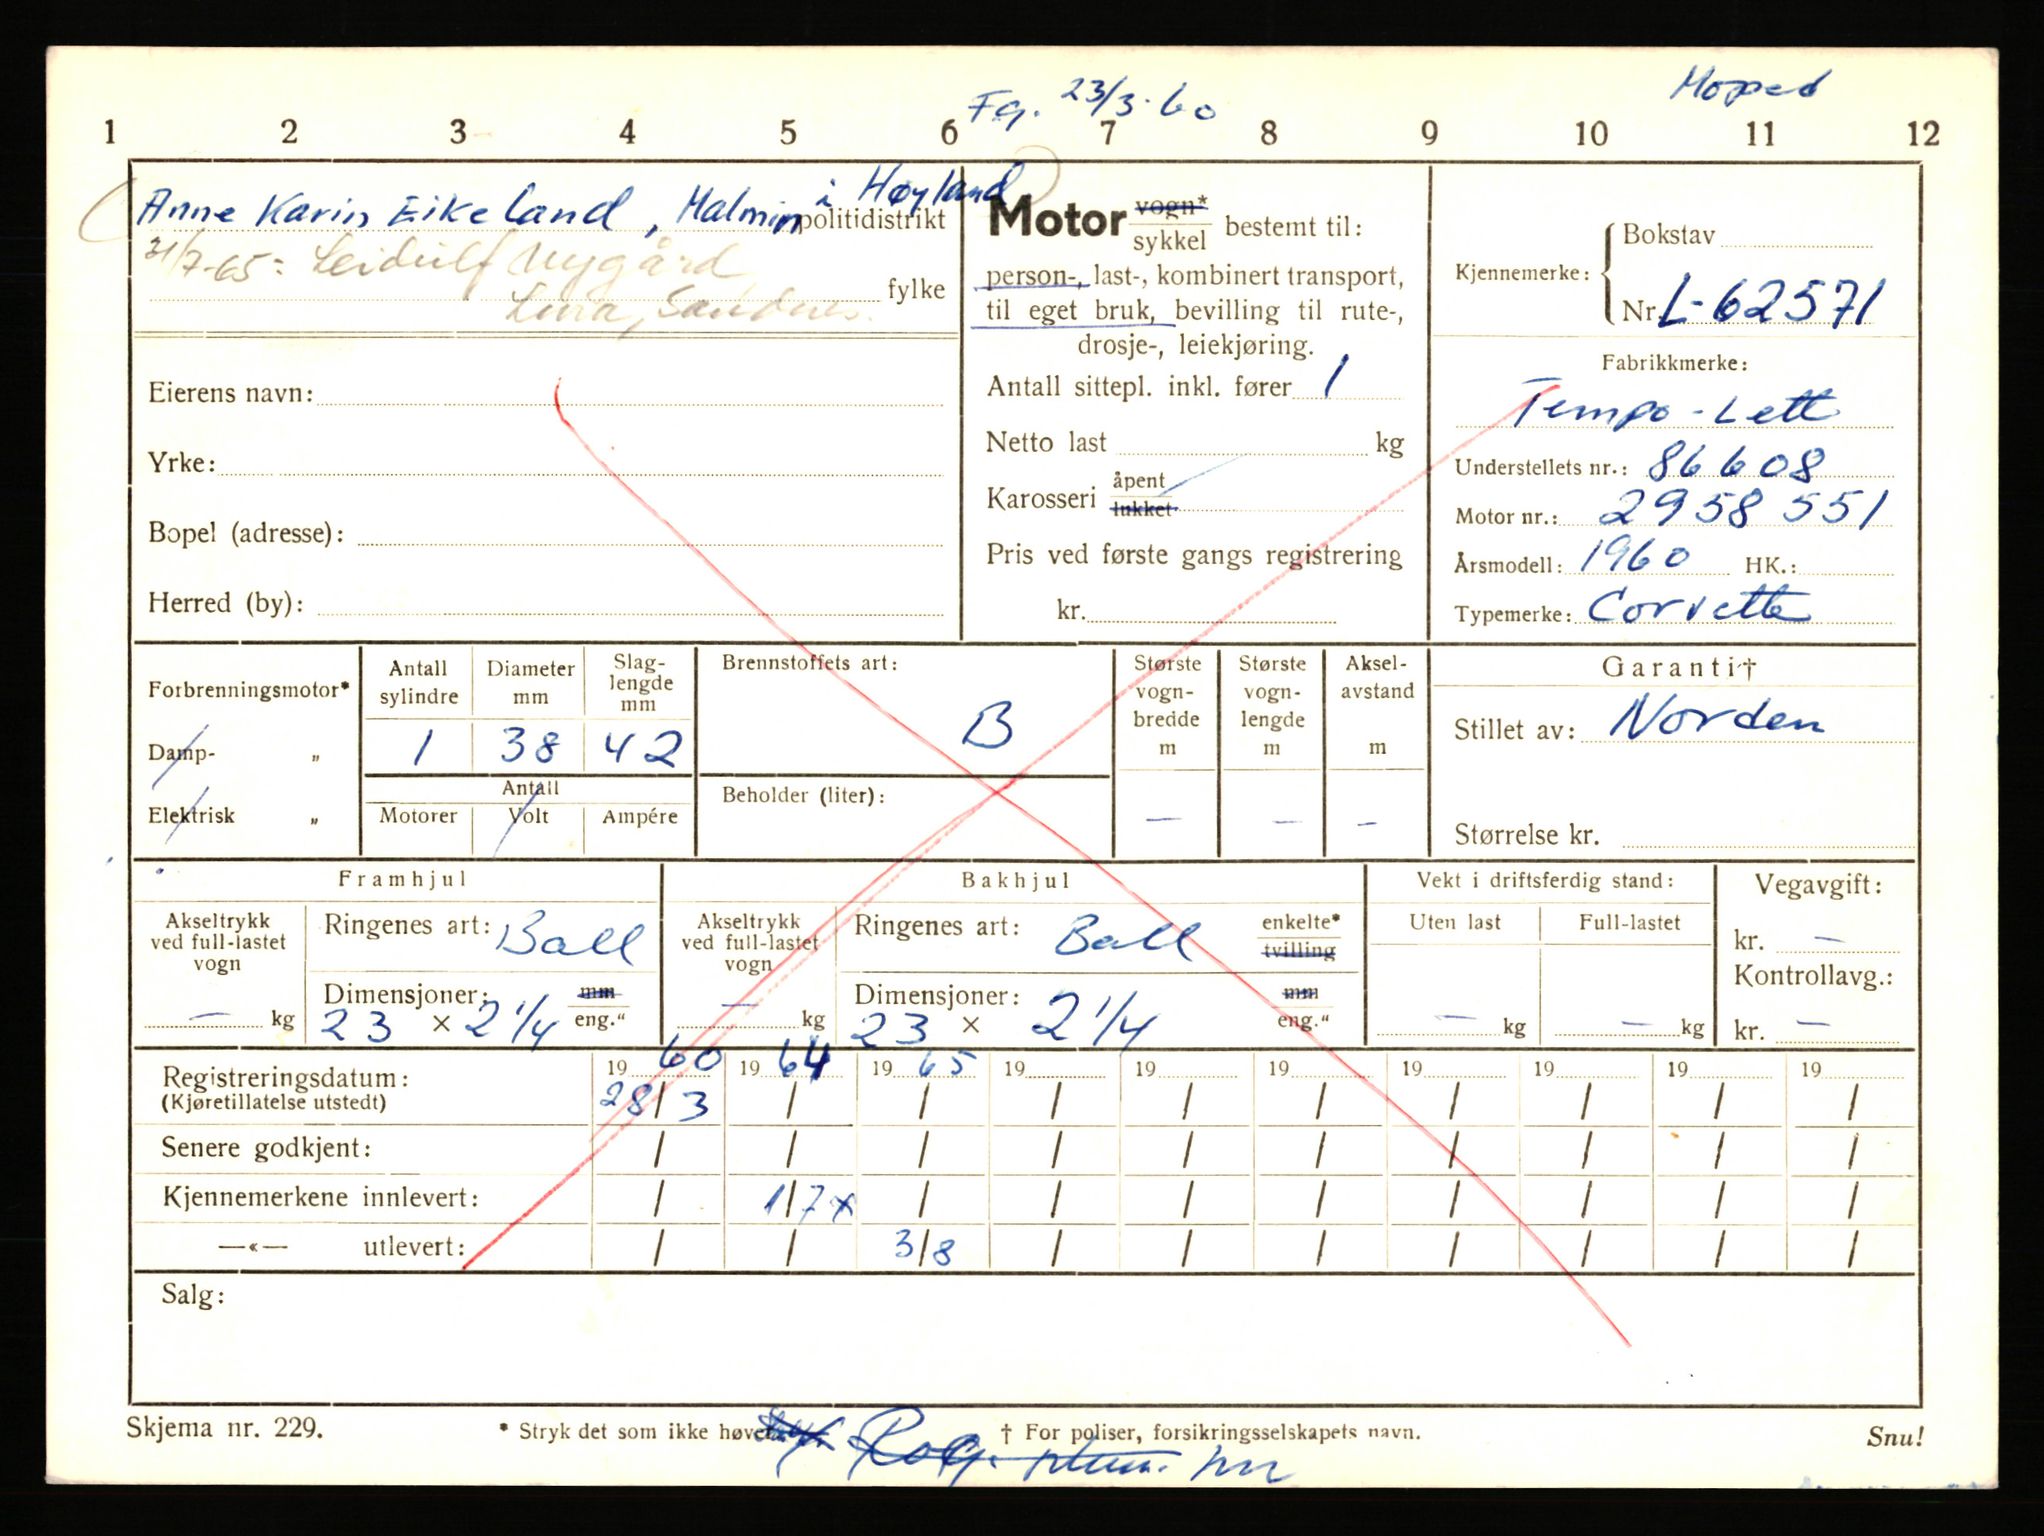 Fg. 23/3-60
Moped
1 2 3 4 5 6 7 8 9 10 11 12
Anne Karin Eikeland, Malmin i Høyland
politidistrikt
31/7-65: Leidulf Nygård
Lura, Sandnes.
fylke
Eierens navn:
Yrke:
Bopel (adresse):
Herred (by):
Motor vogn* sykkel bestemt til:
person-, last-, kombinert transport,
til eget bruk, bevilling til rute-,
drosje-, leiekjøring.
Antall sittepl. inkl. fører 1
Netto last kg
Karosseri åpent lukket
Pris ved første gangs registrering
kr.
Kjennemerke: Bokstav
Nr. L-62571
Fabrikkmerke:
Tempo-Lett
Understellets nr.: 86608
Motor nr.: 2958551
Årsmodell: 1960 HK.:
Typemerke: Corvette
Forbrenningsmotor*
Damp- „
Elektrisk „
Antall sylindre
Diameter mm
Slag-
lengde
mm
1 38 42
Antall
Motorer Volt Ampére
Brennstoffets art:
B
Beholder (liter):
Største
vogn-
bredde
m
—
Største
vogn-
lengde
m
—
Aksel-
avstand
m
—
Garanti†
Stillet av: Norden
Størrelse kr.
Framhjul
Akseltrykk
ved full-lastet
vogn
— kg
Ringenes art: Ball
Dimensjoner: mm
23 × 2 1/4 eng."
Bakhjul
Akseltrykk
ved full-lastet
vogn
— kg
Ringenes art: Ball enkelte* tvilling
Dimensjoner: mm
23 × 2 1/4 eng."
Vekt i driftsferdig stand:
Uten last Full-lastet
— kg — kg
Vegavgift:
kr. —
Kontrollavg.:
kr. —
1960 1964 1965 19 19 19 19 19 19 19
Registreringsdatum: 28/3 / / / / / / / / /
(Kjøretillatelse utstedt)
Senere godkjent: / / / / / / / / / /
Kjennemerkene innlevert: / 1/7x / / / / / / / /
—«— utlevert: / / 3/8 / / / / / / /
Salg:
Skjema nr. 229.
* Stryk det som ikke
† For poliser, forsikringsselskapets navn.
Snu!
Rog.